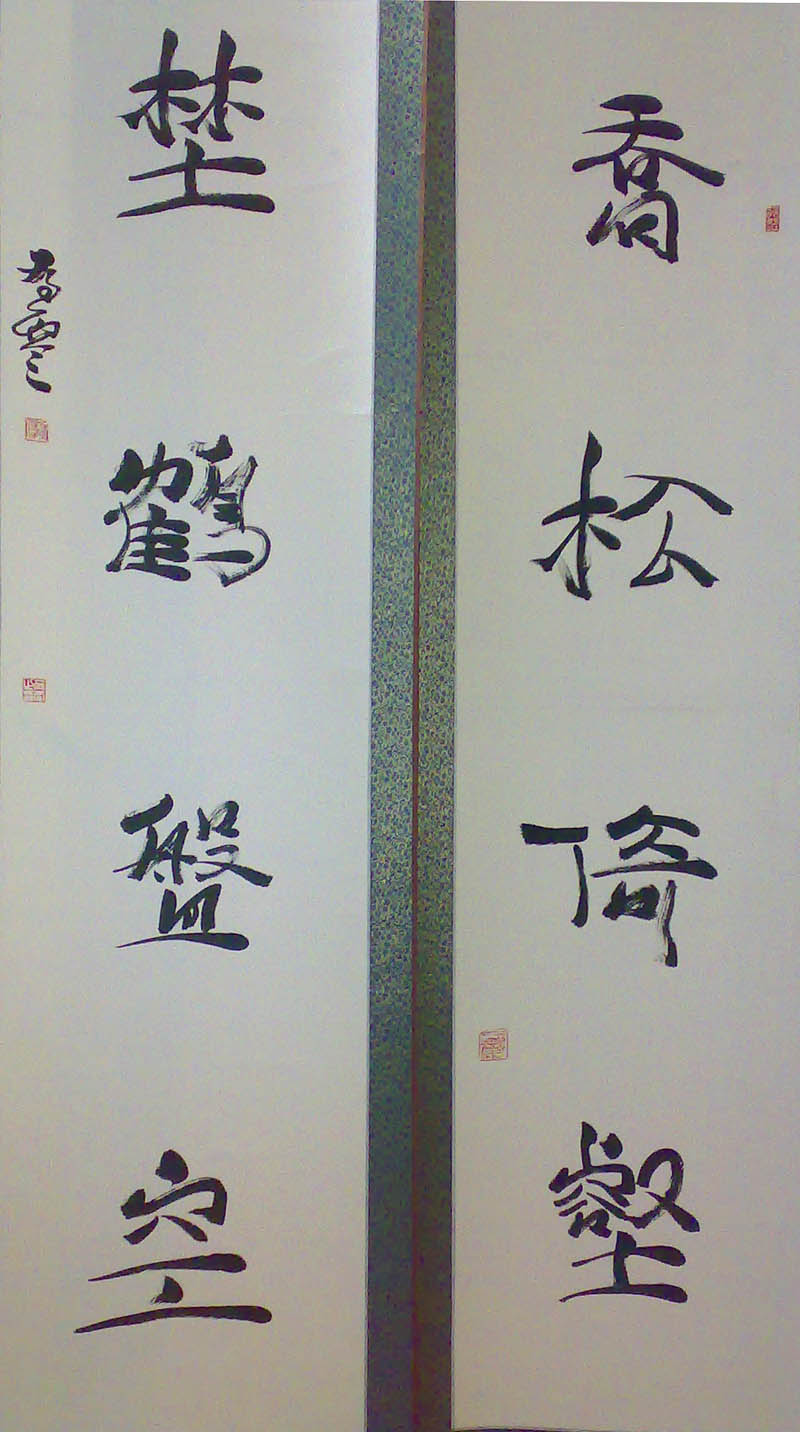 喬松倚壑
埜鶴盤空